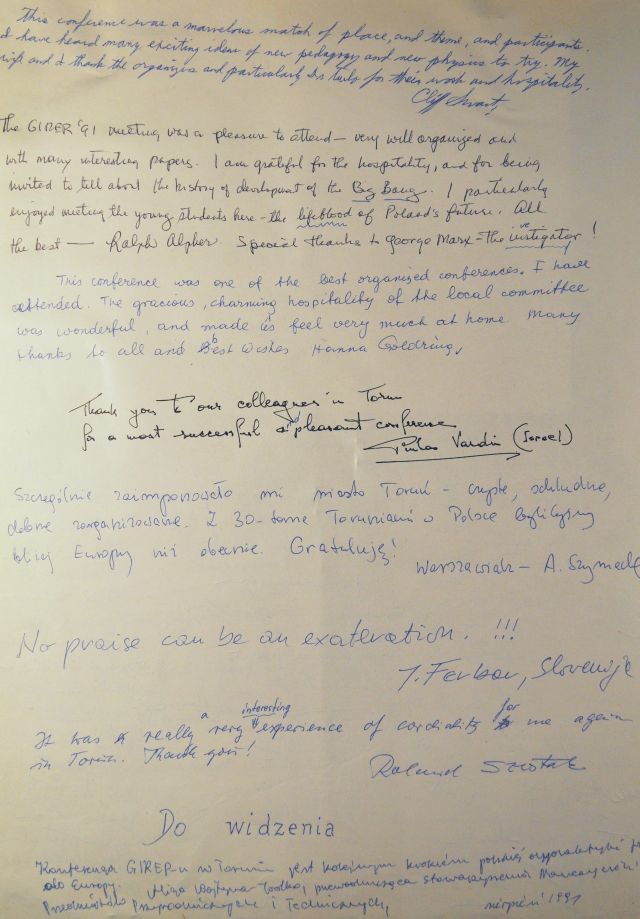 This conference was a marvelous match of place, and theme, and participants.
I have heard many exciting ideas of new pedagogy and new physics to try. My
wife and I thank the organizers and particularly for their work and hospitality.
Cliff Swartz
The GIREP '91 meeting was a pleasure to attend — very well organized and
with many interesting papers. I am grateful for the hospitality, and for being
invited to tell about the history of development of the Big Bang. I particularly
enjoyed meeting the young students here - the lifeblood of Poland's future. All
the best — Ralph Alpher. Special thanks to George Marx - the instigator!
This conference was one of the best organised conferences. I have
attended. The gracious, charming hospitality of the local committee
was wonderful, and made us feel very much at home Many
thanks to all and Best Wishes Hanna Goldring,
Thank you to our colleagues in Torun
for a most successful and pleasant conference
(Israel)
Szczególnie zaimponowało mi miasto Toruń - czyste, schludne,
dobrze zorganizowane. Z 30-toma Toruniami w Polsce bylibyśmy
bliżej Europy niż obecnie. Gratuluję!
Warszawiak - A. 
No praise can be an exateration. !!!
J. Ferbar, Slovenija
It was a really very interesting experience of cordiality for me again
in Toruń. Thank you!
Roland
Do widzenia
Konferencja GIREP-u w Toruniu jest kolejnym krokiem polskiej
do Europy. przewodnicząca Stowarzyszenia Nauczycieli
Przedmiotów Przyrodniczych i Technicznych, sierpień 1991